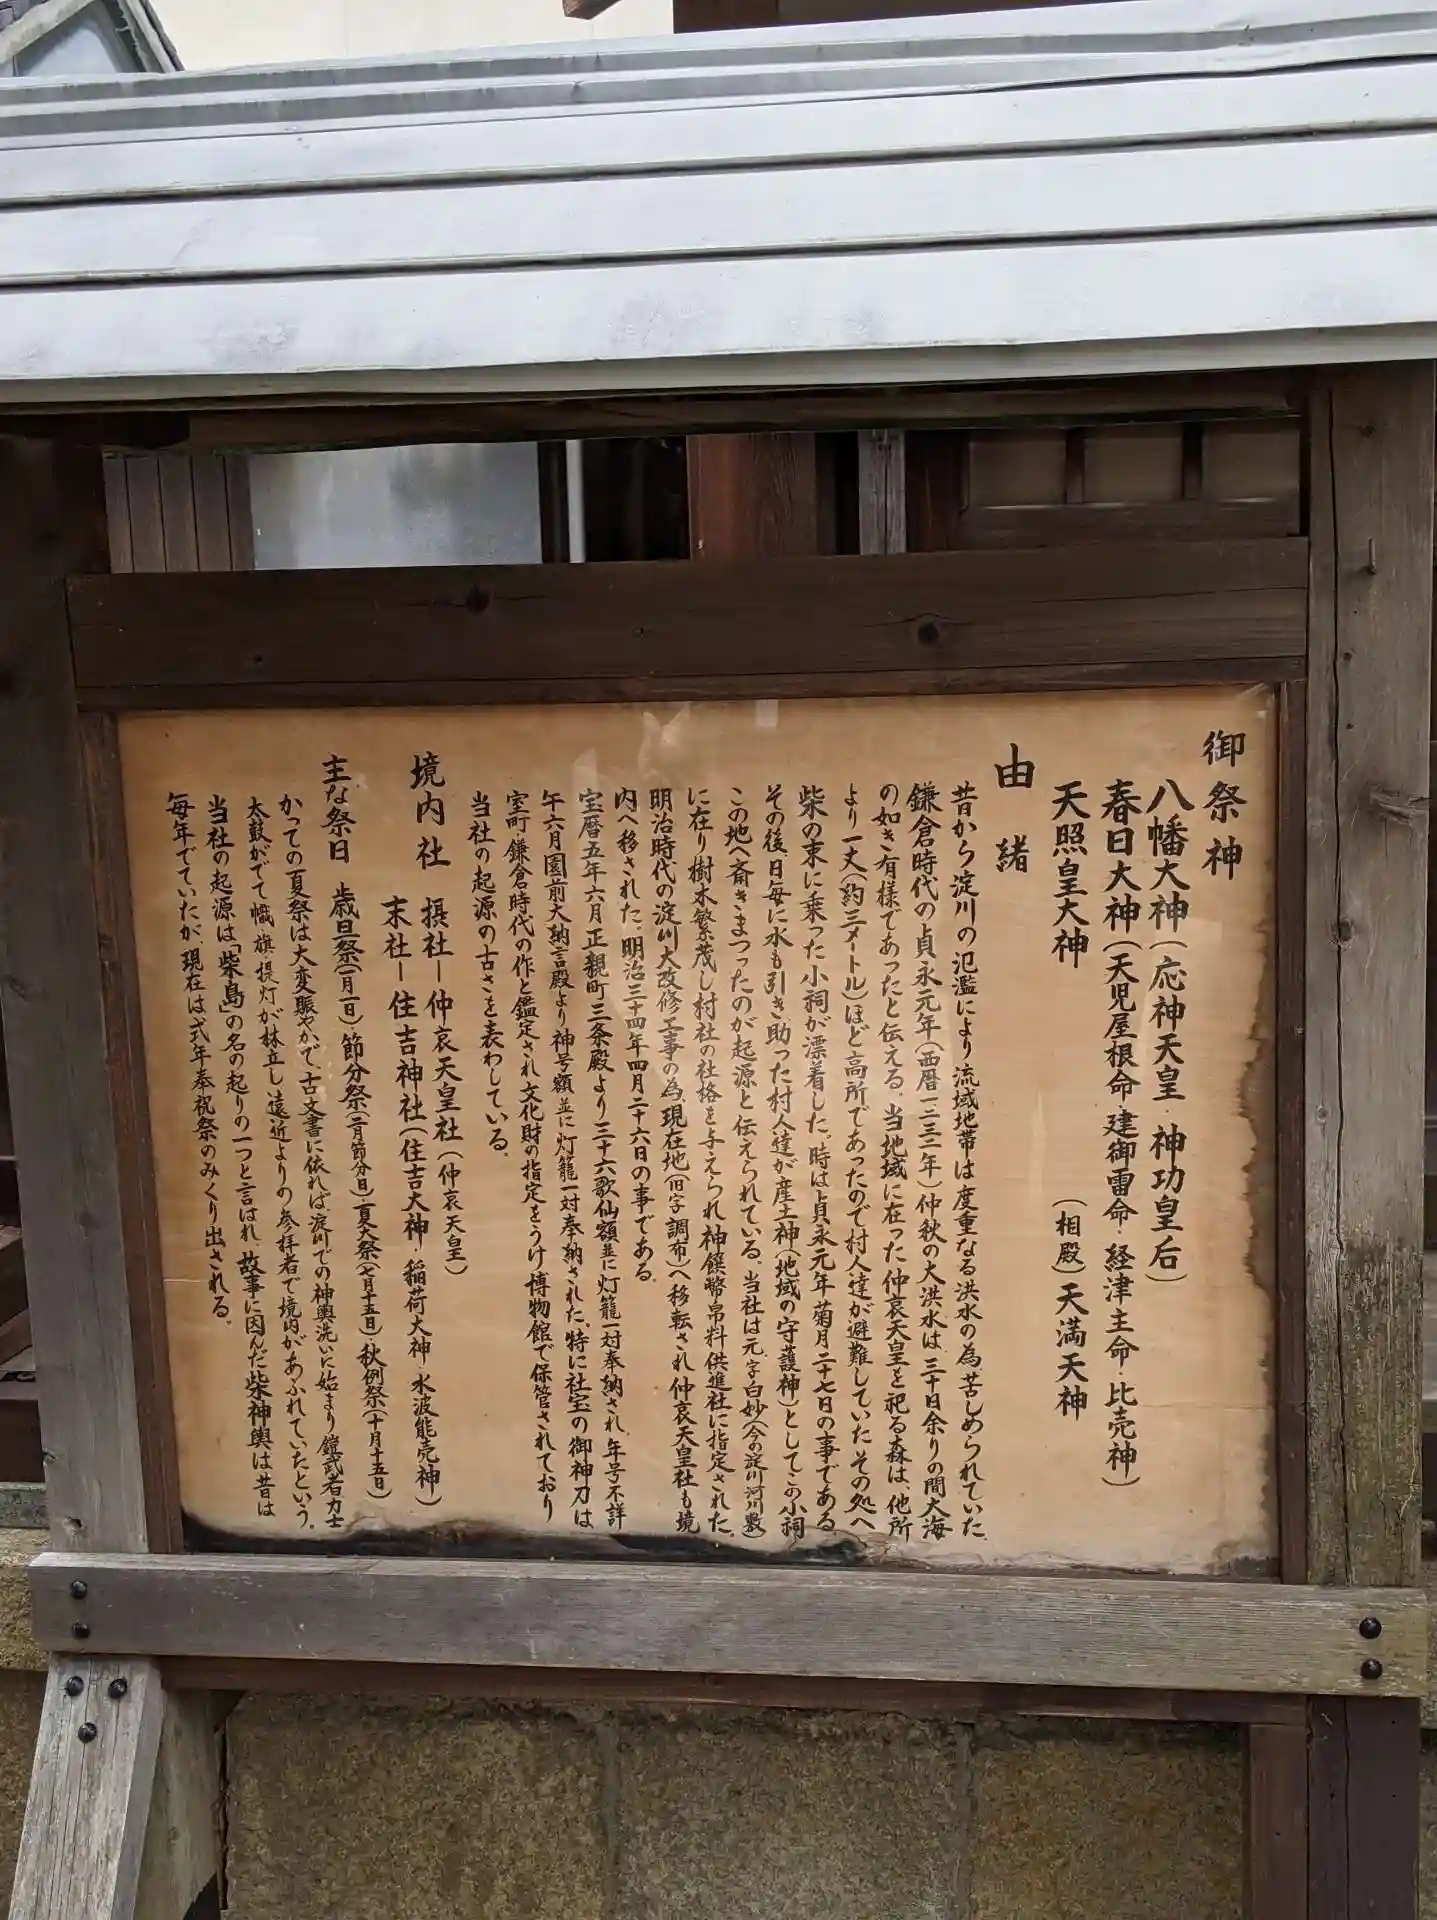 御祭神
八幡大神(応神天皇・神功皇后)
春日大神(天児屋根命・建御雷命・経津主命・比売神)
天照皇大神 (相殿)天満天神
由緒
昔から淀川の氾濫により流域地帯は度重なる洪水の為、苦しめられていた。
鎌倉時代の貞永元年(西暦一二三二年)仲秋の大洪水は、三十日余りの間大海
の如き有様であったと伝える。当地域に在った仲哀天皇を祀る森は、他所
より一丈(約三メートル)ほど高所であったので村人達が避難していたその処へ
柴の束に乗った小祠が漂着した。時は貞永元年菊月二十七日の事である。
その後、日毎に水も引き助った村人達が産土神(地域の守護神)としてこの小祠
この地へ斎きまつったのが起源と伝えられている。当社は元、字白妙(今の淀川河川敷)
に在り樹木繁茂し村社の社格を与えられ神饌幣帛料供進社に指定された。
明治時代の淀川大改修工事の為、現在地(旧字調布)へ移転され仲哀天皇社も境
内へ移された。明治三十四年四月二十六日の事である。
宝暦五年六月正親町三条殿より三十六歌仙額並に灯籠一対奉納され、年号不詳
午六月園前大納言殿より神号額並に灯籠一対奉納された。特に社宝の御神刀は
室町・鎌倉時代の作と鑑定され文化財の指定をうけ博物館で保管されており
当社の起源の古さを表わしている。
境内社 摂社―仲哀天皇社(仲哀天皇)
末社―住吉神社(住吉大神・稲荷大神・水波能売神)
主な祭日 歳旦祭(一月一日)・節分祭(二月節分日)・夏大祭(七月十五日)・秋例祭(十月十五日)
かっての夏祭は大変賑やかで、古文書に依れば、淀川での神輿洗いに始まり鎧武者力士
太鼓がでて幟・旗・提灯が林立し、遠近よりの参拝者で境内があふれていたという。
当社の起源は「柴島」の名の起りの一つと言はれ、故事に因んだ柴神輿は昔は
毎年でていたが、現在は式年奉祝祭のみくり出される。